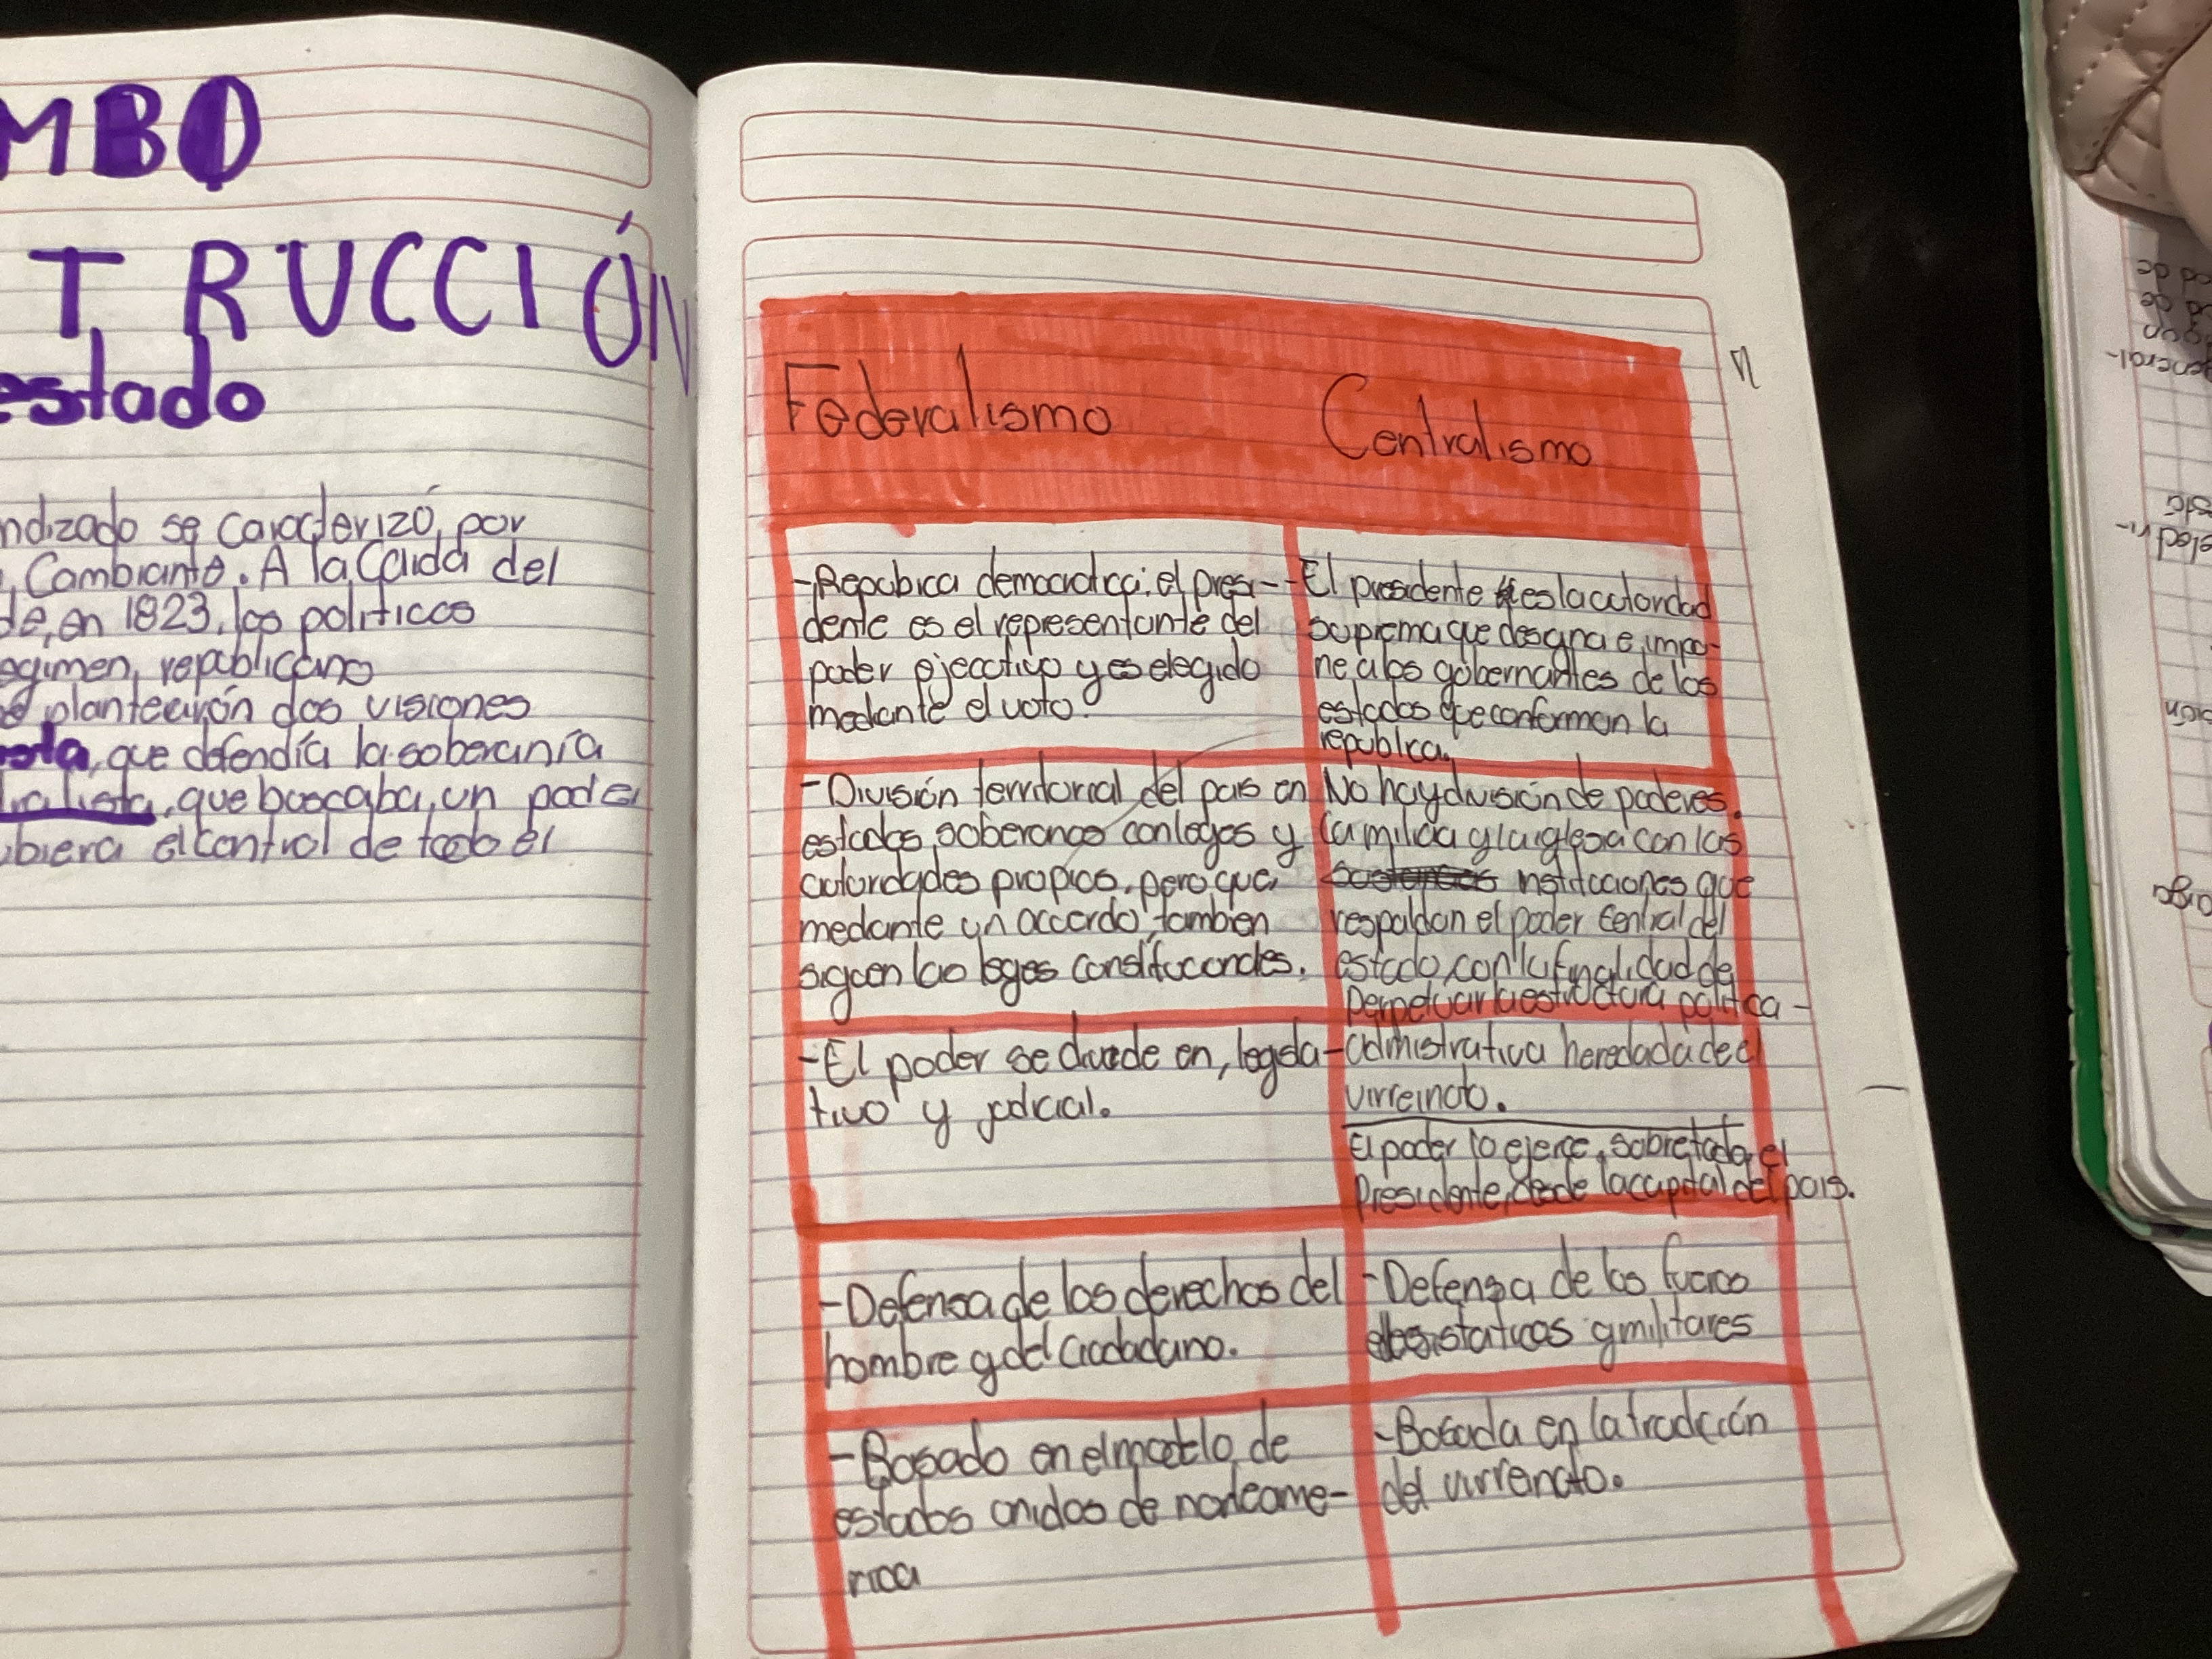 MBO
TRUCCIÓN
estado
ndizado se caracterizó, por
Cambiante. A la Caída del
de, en 1823, los políticos
egimen, republicano
planteavón dos visiones
ista, que defendía la soberanía
tralista, que buscaba, un poder
ubiera el control de todo el
Federalismo
Centralismo
-Repúbica democratica: el presi-
dente es el representante del
poder ejecutivo y es elegido
mediante el voto.
-El presidente es la autoridad
suprema que designa e impo-
ne a los gobernantes de los
estados que conforman la
republica.
-División territorial del pais en
estados soberanos con leges y
autoridades propios, pero que,
mediante un accordo, tambien
siguen las leges constitucionales.
No hay división de poderes.
La milicia y la iglesia con las
instituciones que
respaldan el poder central del
estado, con la finalidad de
Perpetuar la estructura politica-
-El poder se divide en, legisla-
tivo y judicial.
admistrativa heredada del
virreinato.
El poder lo ejerce, sobretodo, el
Presidente, desde la capital del pais.
-Defensa de los derechos del
hombre y del ciudadano.
-Defensa de los fueros
y militares
-Basado en el modelo de
estados unidos de norteame-
rica
-Basada en la tradición
del virreinato.